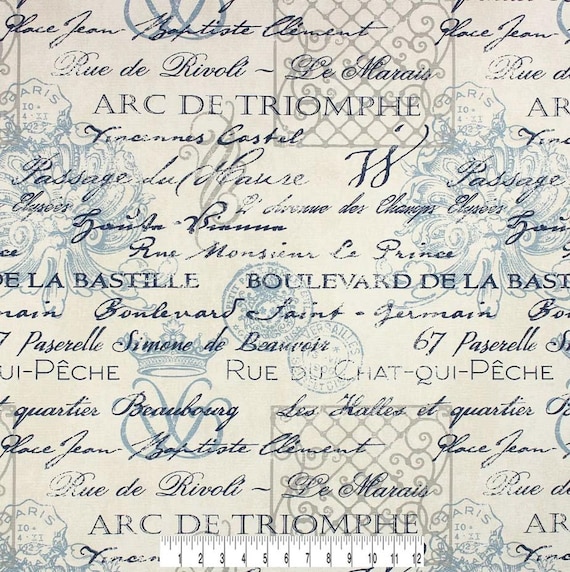 Place Jean Baptiste Clément Place Jean
Rue de Rivoli ~ Le Marais Rue de
PARIS PARIS
ARC DE TRIOMPHE ARC DE
Vincennes Castel
Passage du Havre W Passage
Elysées L'Avenue des Champs Elysées
Haute-Vienne Haute
Rue Monsieur Le Prince Rue
DE LA BASTILLE BOULEVARD DE LA BAST
main Boulevard Saint-Germain Boule
67 Paserelle Simone de Beauvoir 67 Paserelle Sim
UI-PÊCHE RUE DU CHAT-QUI-PÊCHE
et quartier Beaubourg Les Halles et quartier B
Place Jean Baptiste Clément Place Jean
Rue de Rivoli ~ Le Marais Rue de
PARIS PARIS
ARC DE TRIOMPHE ARC DE
1 2 3 4 5 6 7 8 9 10 11 12